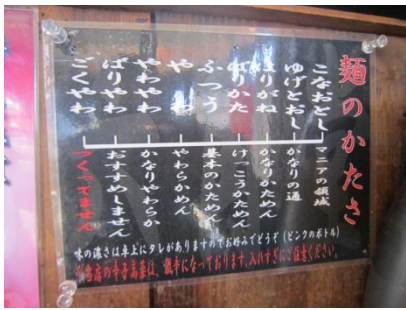 麺のかたさ
こなおとし マニアの領域
ゆげとおし かなりの通
はりがね かなりかためん
ばりかた けっこうかためん
ふつう 基本のかためん
やわ やわらかめん
やわやわ かなりやわらか
ばりやわ おすすめしません
ごくやわ つくってません
味の濃さは卓上にタレがありますのでお好みでどうぞ(ピンクのボトル)
当店の辛子高菜は、激辛になっております。入れすぎにご注意ください。